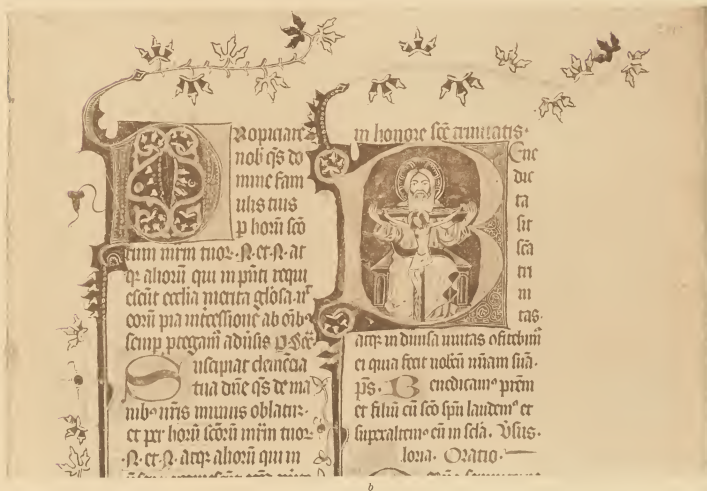 PRopiciare
nob̄ q̄s do
mine fam
ulis tuis
p horū scō
rum mr̄m tuor. N. et. N. at
qꝫ aliorū qui in pn̄ti requi
escūt ecclīa merita glōsa. ut
eorū pia int̄cessione ab oīb⁹
semp ptegam̄ adūsis p Secr̄
Suscipiat clemēcia
tua dn̄e q̄s de ma
nib⁹ nr̄is munus oblatū.
et per horū scōrū mr̄m tuor.
.N. et .N. atqꝫ aliorū qui in
in honore scē trinitatis.
Bene
dic
ta
sit
scā
tri
ni
tas.
atqꝫ in diuisa unitas ɔfitebim̄
ei quia fecit nobcū m̄iam suā.
ps. Benedicam⁹ prēm
et filiū cū scō spū laudem⁹ et
supexaltem⁹ eū in scl̄a. Vsus.
loria. Oratio.
b